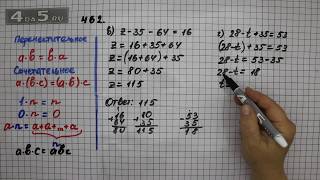 4DS.RU
462.
Переместительное
a·b=b·a
Сочетательное
a·(b·c)=(a·b)·c
1·n=n
0·n=0
a·n=a+a+...+a
a·b·c=abc
в) z-35-64=16
z=16+35+64
z=(16+64)+35
z=80+35
z=115
Ответ: 115
+16
64
80
+80
35
115
г) 28-t+35=53
(28-t)+35=53
28-t=53-35
28-t=18
t=
-53
35